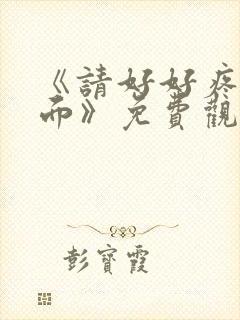 《請好好疼
而》免費觀
彭寶霞